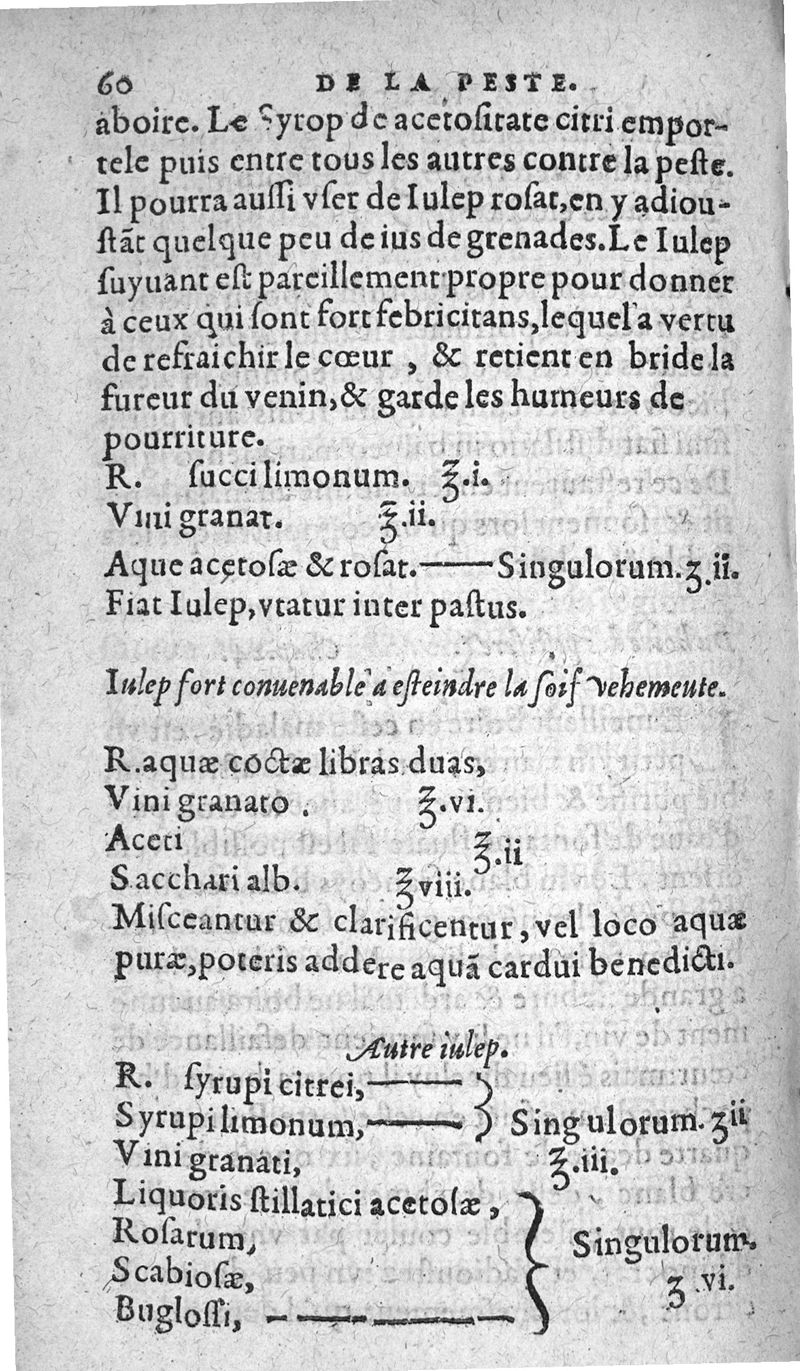 60 DE LA PESTE.
aboire. Le Syrop de acetoſitate citri empor-
tele puis entre tous les autres contre la peſte.
Il pourra auſſi vſer de Iulep roſat, en y adiou-
ſtãt quelque peu de ius de grenades. Le Iulep
ſuyuant eſt pareillement propre pour donner
à ceux qui ſont fort febricitans, lequel a vertu
de refraichir le cœur , & retient en bride la
fureur du venin, & garde les humeurs de
pourriture.
R. ſucci limonum. ℥.i.
Vini granat. ℥.ii.
Aque acetoſæ & roſat.——Singulorum.ʒ.ii.
Fiat Iulep, vtatur inter paſtus.
Iulep fort conuenable a eſteindre la ſoif vehemeute.
R. aquæ coctæ libras duas,
Vini granato . ℥.vi.
Aceti ℥.ii
Sacchari alb. ℥viii.
Miſceantur & clarificentur, vel loco aquæ
puræ, poteris addere aquã cardui benedicti.
Autre iulep.
R. ſyrupi citrei,———}
Syrupi limonum,———} Singulorum. ʒii
Vini granati, ℥.iii.
Liquoris ſtillatici acetoſæ ,
Roſarum, Singulorum.
Scabioſæ, ʒ.vi.
Bugloſſi,